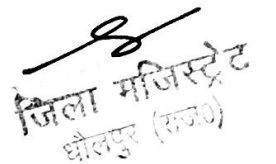 जिला मजिस्ट्रेट
धौलपुर (राज०)